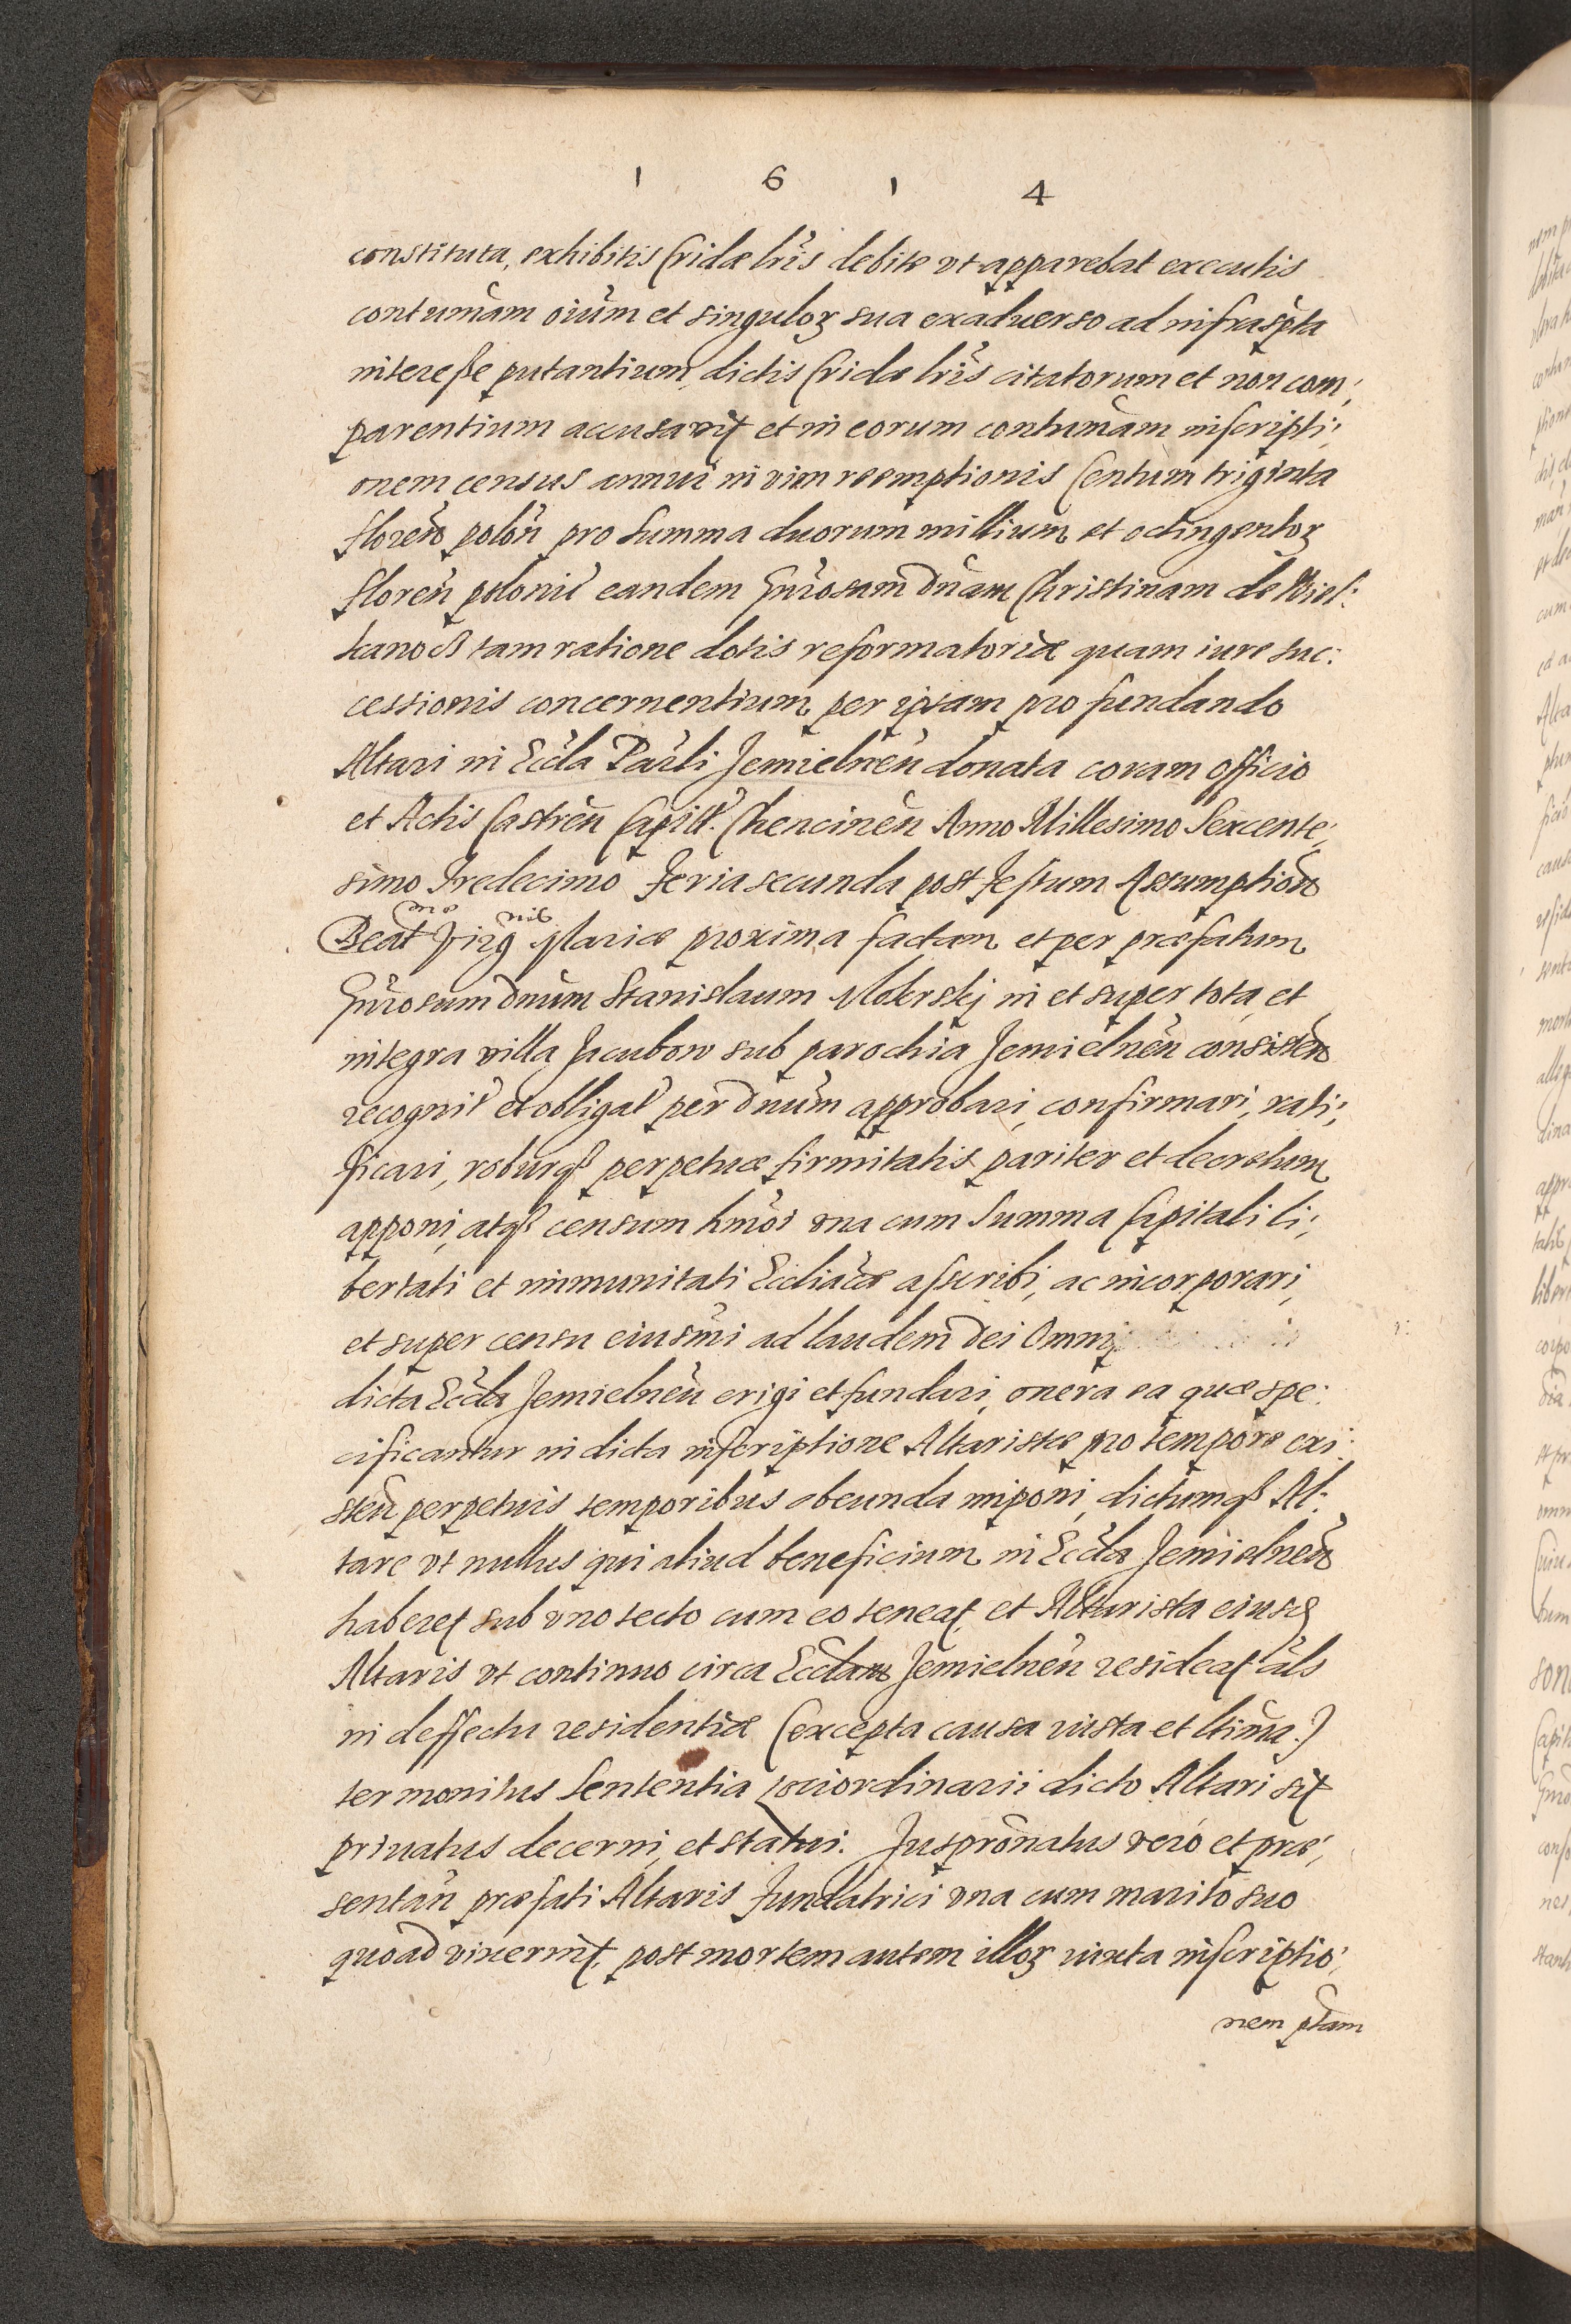 1 6 1 4
constituta, exhibitis Cridæ lris debite vt apparebat executis
contumam oium et singuloꝝ sua exaduerso ad infraspta
interesse putantium, dictis Cridæ lris citatorum et non com:
parentium accusavit et in eorum contumam inscripti:
onem census annui in vim reemptionis Centum triginta
floren polon pro summa duorum millium et octingentoꝝ
floren polonis eandem Gnrosam dnam Christinam de Wiel:
kanocz tam ratione dotis reformatoriæ quam iure suc:
cessionis concernentium per ipsam pro fundando
Altari in Eccla Parli Jemielnen donata coram officio
et Actis Castren Capitl. Chencinen Anno Millesimo Sexcente:
simo Tredecimo feria secunda post festum Assumption
Beatmæ Virgnis Mariæ proxima factam et per præfatum
Gnrosum dnum Stanislaum Mokrskj in et super tota et
integra villa Jacubow sub parochia Jemielnen consisten
recognit et obligat per dnum approbari, confirmari, rati:
ficari, roburqȝ perpetuæ firmitatis pariter et decretum
apponi, atqȝ censum hmoi vna cum summa Capitali li:
bertati et immunitati Eccliacæ asscribi, ac incorporari,
et super censu eiusmi ad laudem Dei Omnip
dicta Eccla Jemielnen erigi et fundari, onera ea quæ spe:
cificantur in dicta inscriptione Altaristæ pro tempore exi:
sten perpetuis temporibus obeunda imponi, dictumqȝ Al:
tare vt nullus qui aliud beneficium in Eccla Jemielnen
haberet sub vno tecto cum eo teneat, et Altarista eiusd
Altaris vt continuo circa Ecclam Jemielnen resideat als
in deffectu residentiæ (excepta causa iusta et ltima.)
ter monitus Sententia lociordinarii dicto Altari sit
priuatus decerni, et statui. Juspronatus vero et præ:
sentan præfati Altaris fundatrici vna cum marito suo
quoad vixerint, post mortem autem illoꝝ iuxta inscriptio:
nem ptam